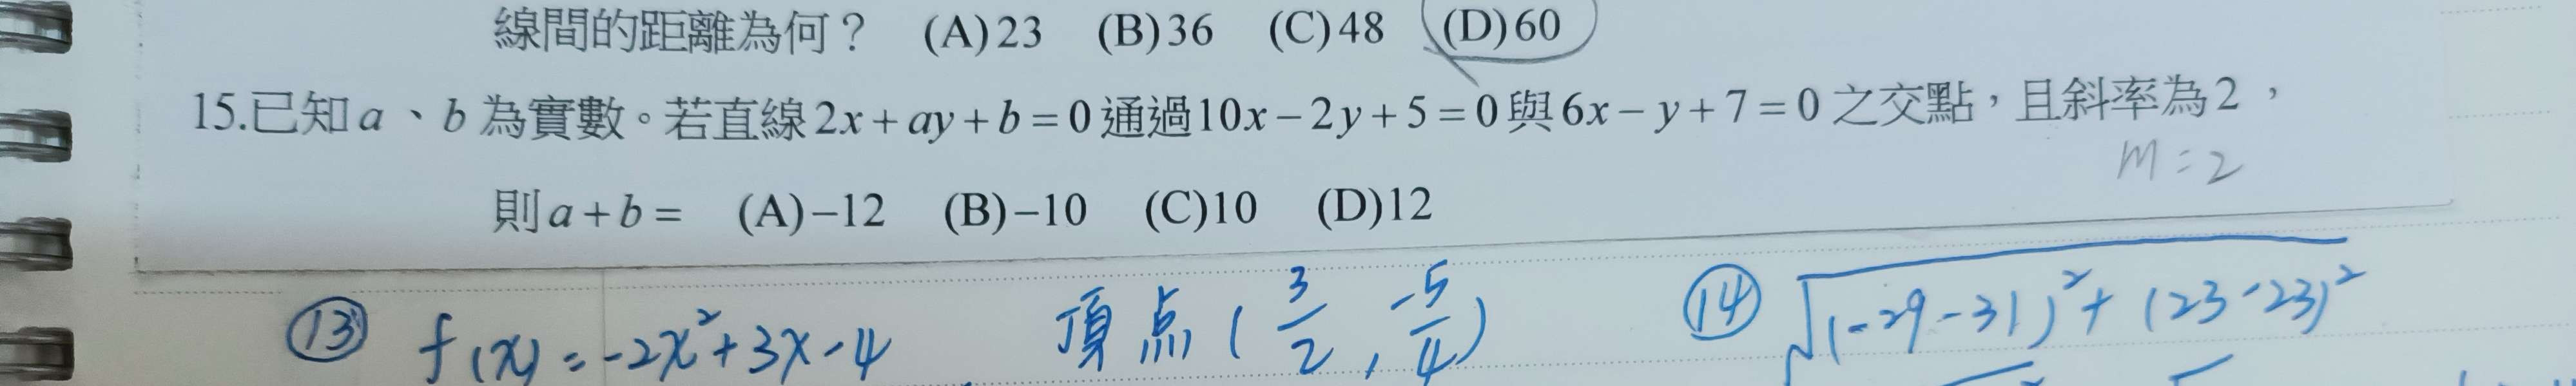 線間的距離為何？ (A)23 (B)36 (C)48 (D)60
15.已知a、b為實數。若直線2x+ay+b=0通過10x−2y+5=0與6x−y+7=0之交點，且斜率為2，
m=2
則a+b= (A)−12 (B)−10 (C)10 (D)12
⑬ f(x)=-2x²+3x-4 頂点(3/2, -5/4) ⑭ √(-29-31)²+(23-23)²